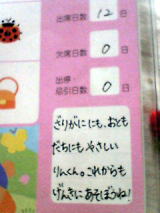 出席日数 12 日
欠席日数 0 日
出停・
忌引日数 0 日
ざりがににも。おとも
だちにもやさしい
りんくん。これからも
げんきにあそぼうね!